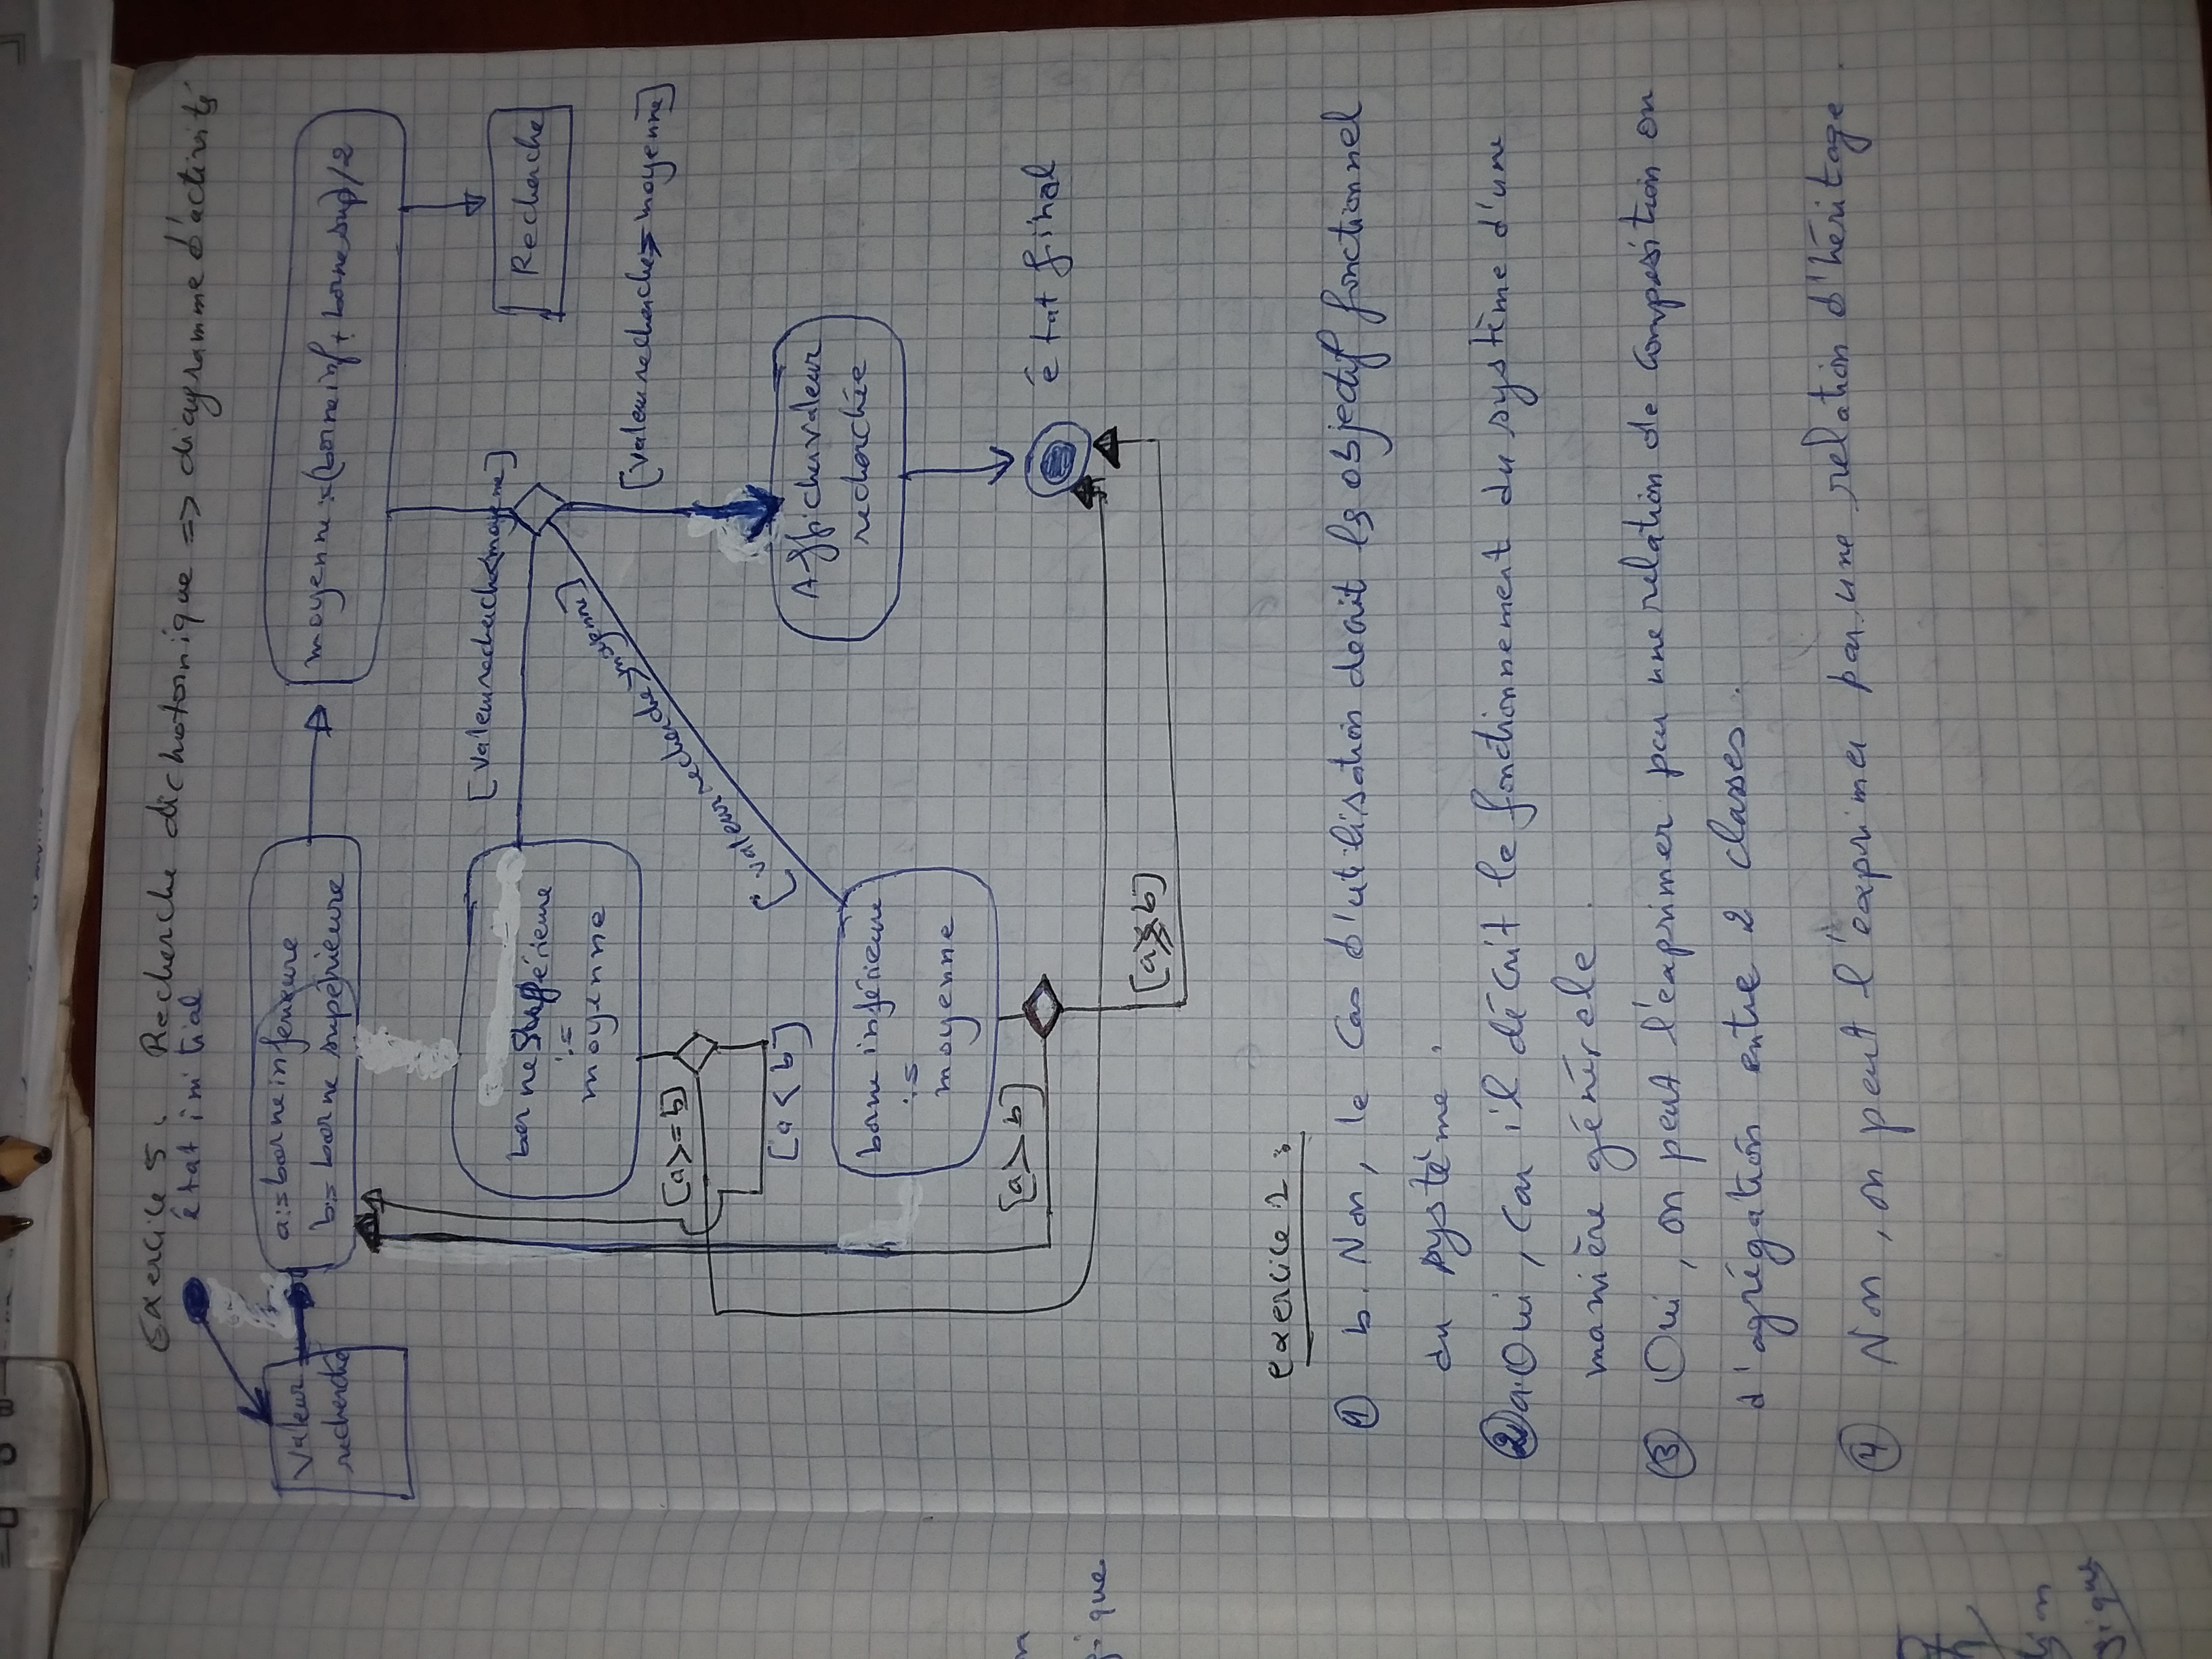 Exercice 5. Recherche dichotomique => diagramme d'activité
état initial
Valeur
recherché
a:=borne inferieure
b:= borne supérieure
moyenne :=(borne inf + borne sup)/2
[Valeur recherch<moyenne]
Recherche
borne Supérieure
:=
moyenne
[valeur recherche>moyenne]
[Valeur recherche= moyenne]
[a>=b]
[a < b]
Afficher valeur
recherchée
borne inférieure
:=
moyenne
[a > b]
état final
[a b]
exercice 2 :
① b. Non, le Cas d'utilisation decrit ls objectif fonctionnel
du système.
② a. Oui, Car il décrit le fonctionnement du système d'une
manière générale.
③ Oui, on peut l'exprimer par une relation de composition ou
d'agrégation entre 2 classes.
④ Non, on peut l'exprimer par une relation d'héritage.
que
gique